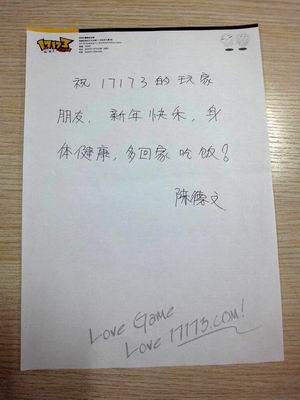 17173
祝17173的玩家
朋友，新年快乐，身
体健康，多回家吃饭？
陈儒文
Love Game
Love 17173.COM!